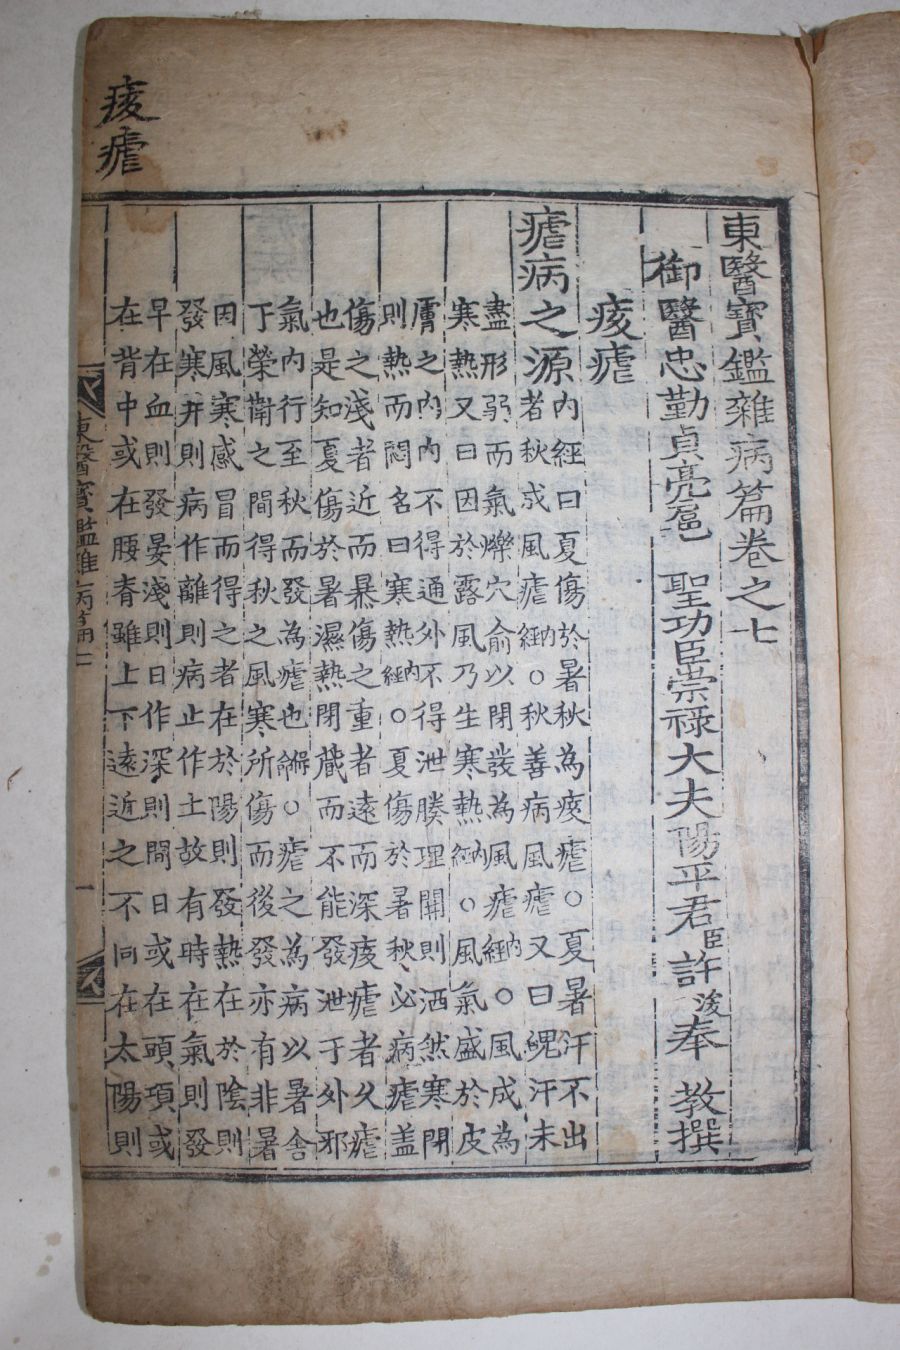 痎瘧
東醫寶鑑雜病篇卷之七
御醫忠勤貞亮扈 聖功臣崇祿大夫陽平君臣許浚奉 教撰
痎瘧
瘧病之源內經曰夏傷於暑秋為痎瘧○夏暑汗不出
者秋成風瘧內經○秋善病風瘧又曰魄汗未
盡形弱而氣爍穴俞以閉發為風瘧內經○風成為
寒熱又曰因於露風乃生寒熱內經○風氣盛於皮
膚之內內不得通外不得泄腠理開則洒然寒閉
則熱而悶名曰寒熱內經○夏傷於暑秋必病瘧盖
傷之淺者近而暴傷之重者遠而深痎瘧者久瘧
也是知夏傷於暑濕熱閉藏而不能發泄于外邪
氣內行至秋而發為瘧也○瘧之為病以暑舍
于榮衛之間得秋之風寒所傷而後發亦有非暑
因風寒感冒而得之者在於陽則發熱在於陰則
發寒并則病作離則病止作止故有時在氣則發
早在血則發晏淺則日作深則間日或在頭項或
在背中或在腰脊雖上下遠近之不同在太陽則
東醫寶鑑雜病篇七 一